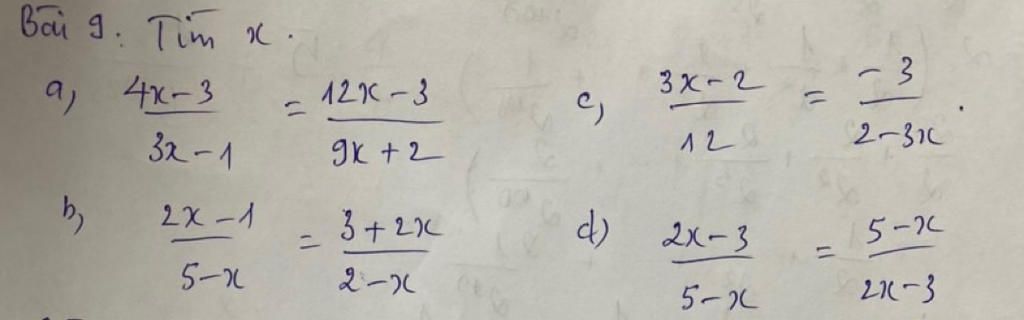 Bài 9: Tìm x.
a, (4x-3)/(3x-1) = (12x-3)/(9x+2)
c, (3x-2)/12 = (-3)/(2-3x).
b, (2x-1)/(5-x) = (3+2x)/(2-x)
d) (2x-3)/(5-x) = (5-x)/(2x-3)